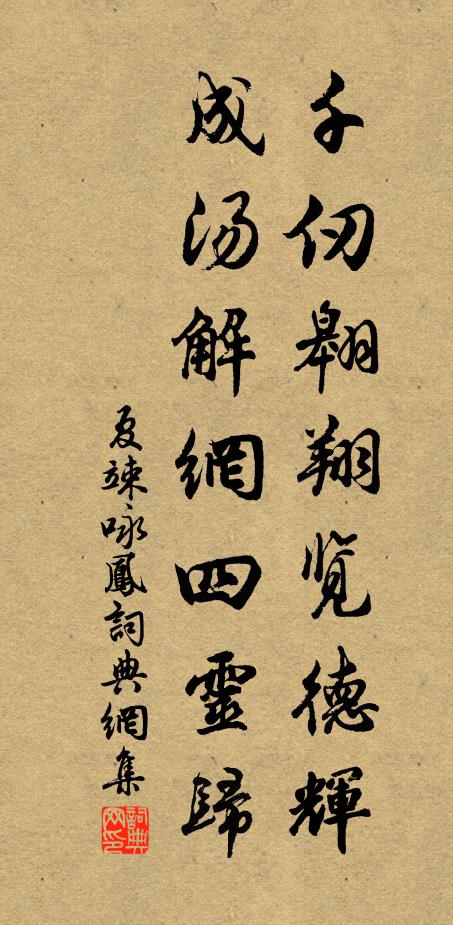 千仞翱翔覽德輝
成汤解網四靈歸
夏竦咏鳳詞典網集
詞典网印